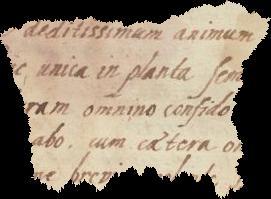 deditissimum animum
unica in planta sem
ram omnino confido
abo. cum cætera om
ne